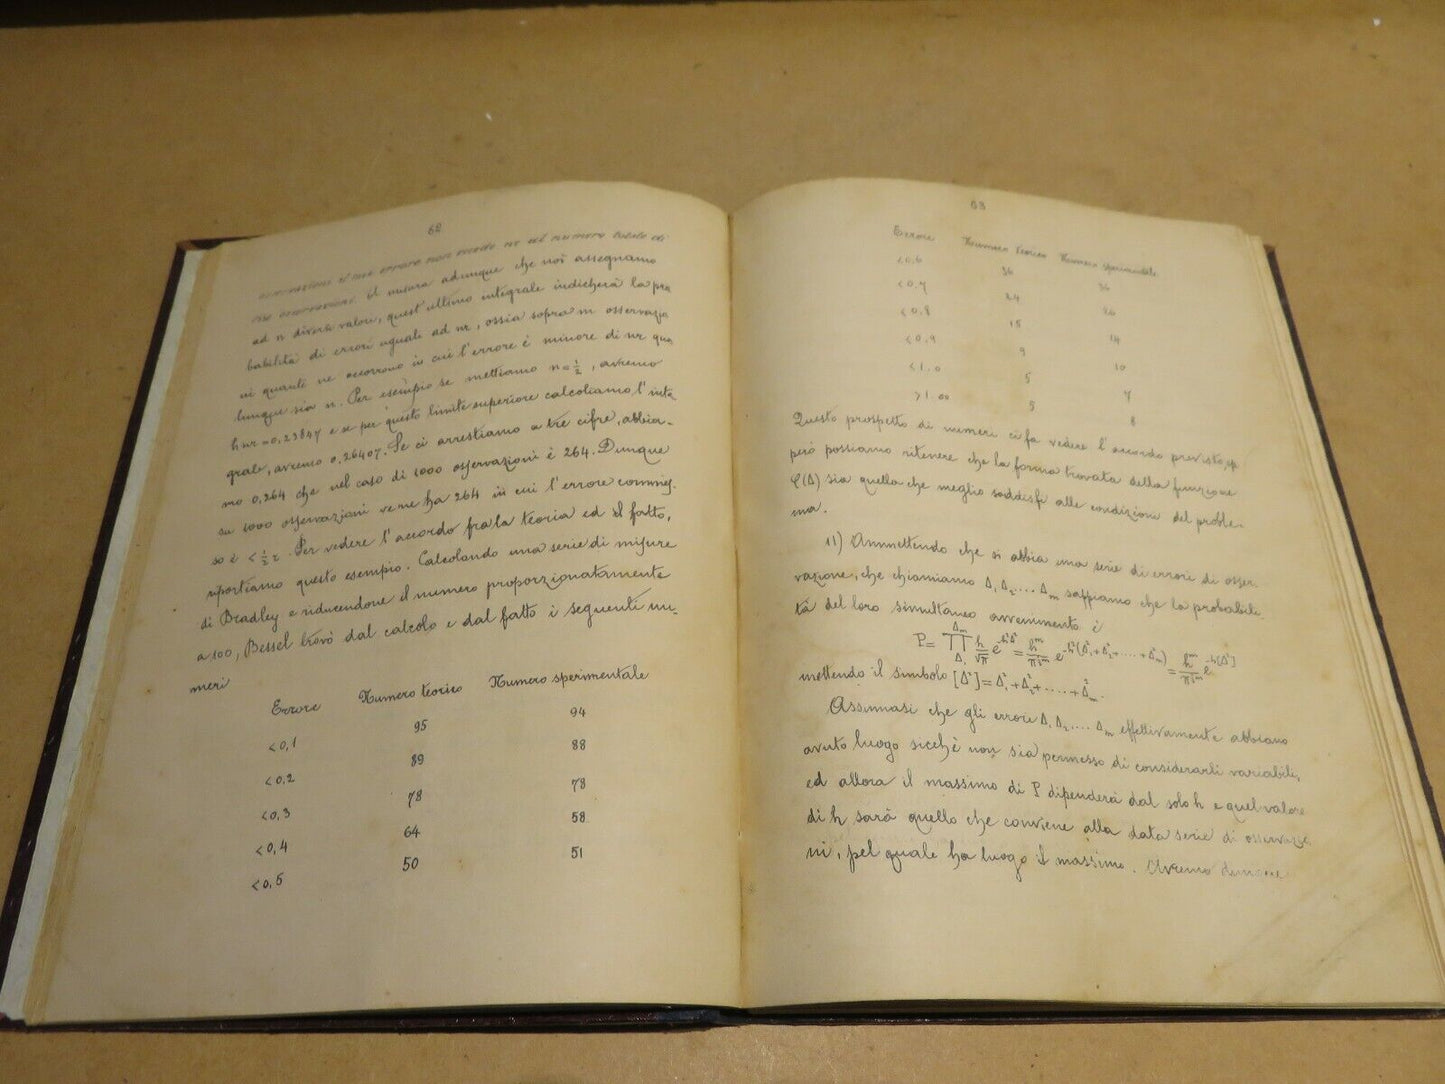 62
osservazioni il cui errore non eccede nr al numero totale di
esse osservazioni. A misura adunque che noi assegnamo
ad n diversi valori, quest'ultimo integrale indicherà la pro
babilità di errori uguali ad nr, ossia sopra m osservazio
ni quanti ne occorrono in cui l'errore è minore di nr qua
lunque sia n. Per esempio se mettiamo n=½, avremo
hnr=0,23847 e se per questo limite superiore calcoliamo l'inte
grale, avremo 0,26407. Se ci arrestiamo a tre cifre, abbia-
mo 0,264 che nel caso di 1000 osservazioni è 264. Dunque
su 1000 osservazioni ve ne ha 264 in cui l'errore commes-
so è <½ r. Per vedere l'accordo fra la teoria ed il fatto,
riportiamo questo esempio. Calcolando una serie di misure
di Bradley e riducendone il numero proporzionatamente
a 100, Bessel trovò dal calcolo e dal fatto i seguenti nu-
meri
Errore Numero teorico Numero sperimentale
<0,1 95 94
<0,2 89 88
<0,3 78 78
<0,4 64 58
<0,5 50 51
63
Errore Numero teorico Numero sperimentale
<0,6 36 36
<0,7 24 26
<0,8 15 14
<0,9 9 10
<1.0 5 7
>1.00 5 8
Questo prospetto di numeri ci fa vedere l'accordo previsto,
però possiamo ritenere che la forma trovata della funzione
φ(Δ) sia quella che meglio soddisfi alle condizioni del proble-
ma.
11) Ammettendo che si abbia una serie di errori di osser-
vazione, che chiamiamo Δ₁Δ₂....Δₘ sappiamo che la probabili-
tà del loro simultaneo avvenimento è
P= ∏ h/√π e^{-h²Δ²} = hᵐ/√πᵐ e^{-h²(Δ₁²+Δ₂²+....+Δₘ²)} = hᵐ/√πᵐ e^{-h²[Δ²]}
mettendo il simbolo [Δ²]=Δ₁²+Δ₂²+.....+Δₘ².
Assumasi che gli errori Δ₁Δ₂....Δₘ effettivamente abbiano
avuto luogo sicchè non sia permesso di considerarli variabili,
ed allora il massimo di P dipenderà dal solo h e quel valore
di h sarà quello che conviene alla data serie di osservazio
ni, pel quale ha luogo il massimo. Avremo dunque